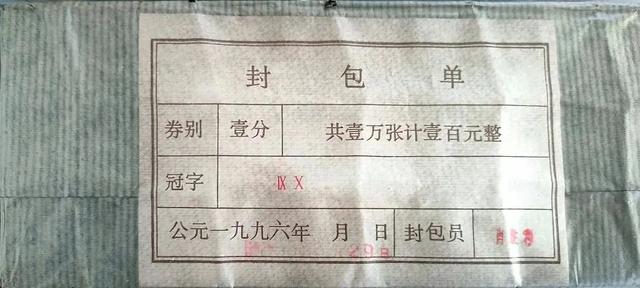 封包单
券别 壹分 共壹万张计壹百元整
冠字 Ⅸ Ⅹ
公元一九九六年 月 日 封包员
29日